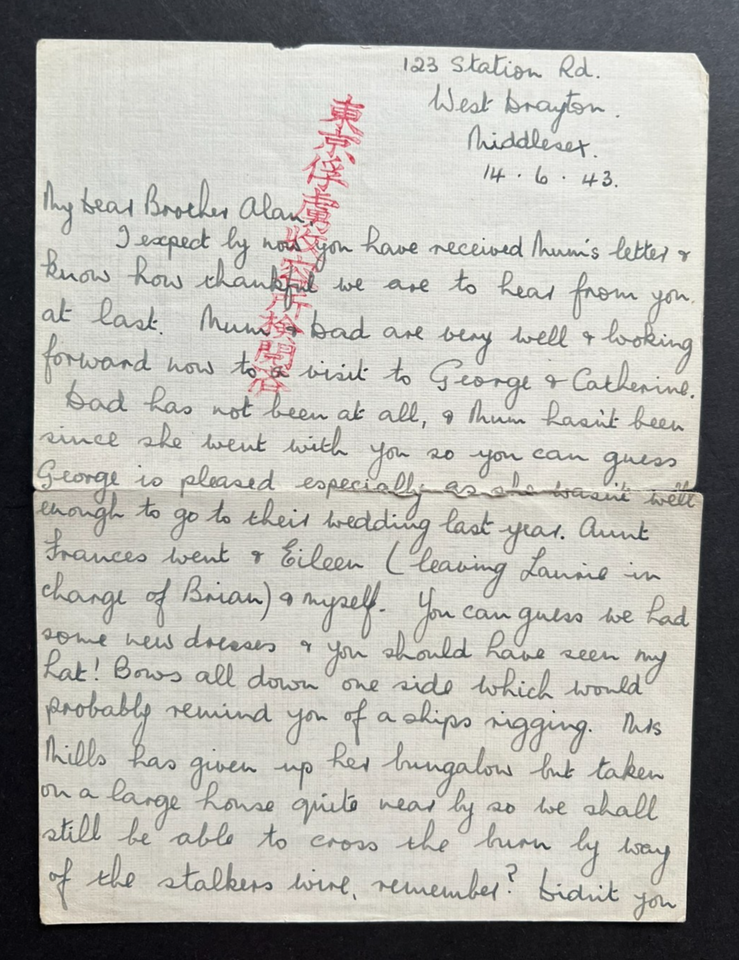 123 Station Rd.
West Drayton.
Middlesex.
14 . 6 . 43.
東京俘虜收容所検閲済
My Dear Brother Alan,
I expect by now you have received Mum's letter &
know how thankful we are to hear from you.
at last. Mum & Dad are very well & looking
forward now to a visit to George & Catherine.
Dad has not been at all, & Mum hasn't been
since she went with you so you can guess
George is pleased especially as she wasn't well
enough to go to their wedding last year. Aunt
Frances went & Eileen (leaving Laurie in
charge of Brian) & myself. You can guess we had
some new dresses & you should have seen my
hat! Bows all down one side which would
probably remind you of a ships rigging. Mrs
Mills has given up her bungalow but taken
on a large house quite near by so we shall
still be able to cross the burn by way
of the stalkers wire, remember? Didn't you